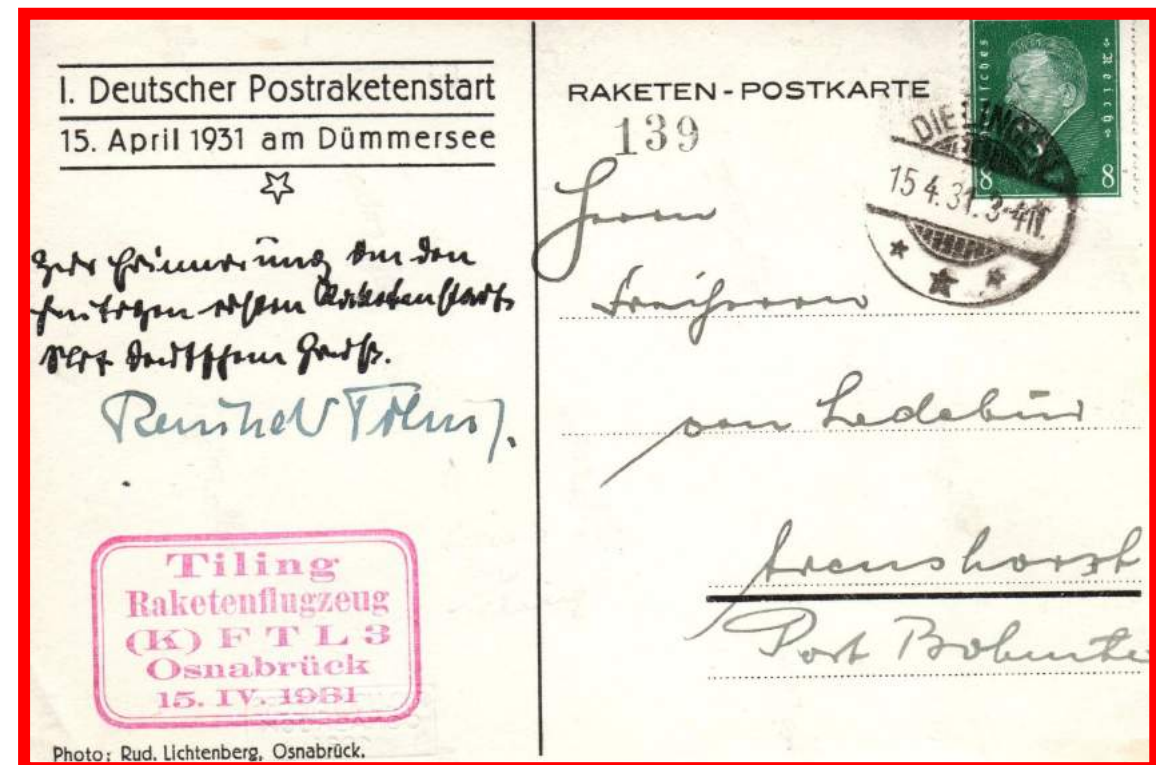 I. Deutscher Postraketenstart
15. April 1931 am Dümmersee
Zur Erinnerung an den
heutigen ersten Raketenstart.
Mit deutschem Gruß.
Reinhold Tiling.
Tiling
Raketenflugzeug
(K) F T L 3
Osnabrück
15. IV. 1931
Photo: Rud. Lichtenberg, Osnabrück.
RAKETEN-POSTKARTE
139
Deutsches Reich
8 8
15 4. 31. 3-4N.
Herrn
Freiherrn
von Ledebur
Arenshorst
Post Bohmte